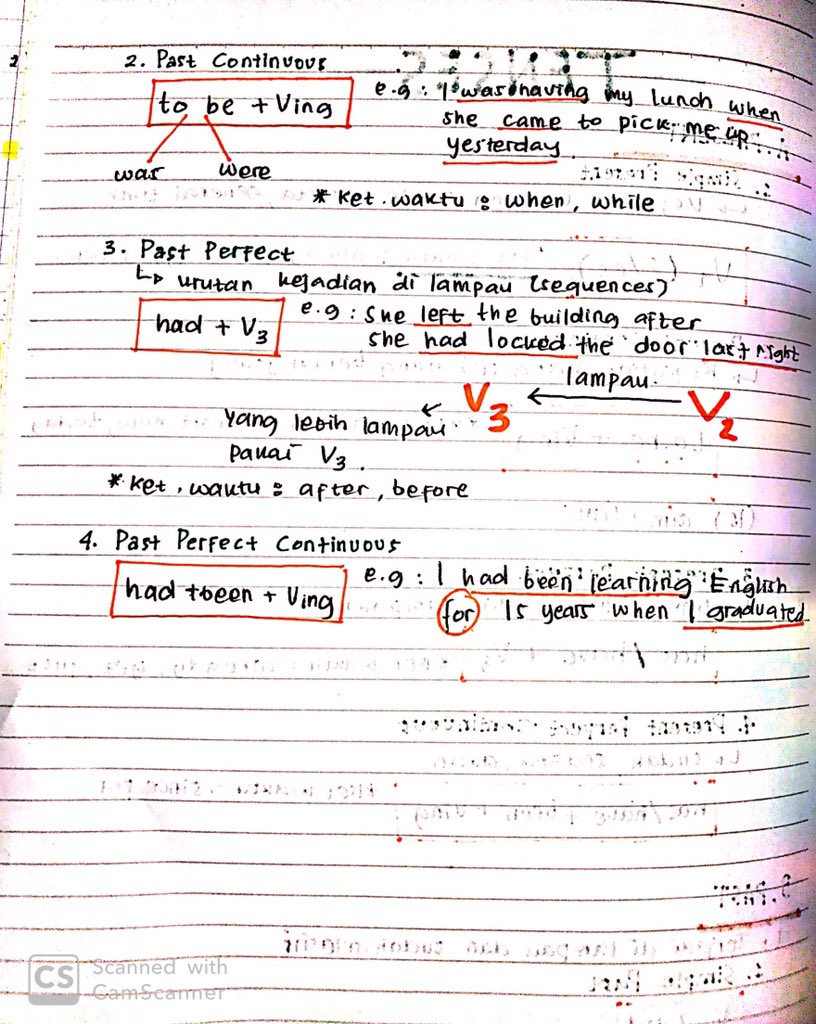 2. Past Continuous
to be + Ving
was were
e.g : I was having my lunch when
she came to pick me up
yesterday
* Ket. waktu : when, while
3. Past Perfect
↳ urutan kejadian di lampau (sequences)
had + V3
e.g : She left the building after
she had locked the door last night
lampau.
V3 ← V2
Yang lebih lampau
pakai V3.
* Ket. waktu : after, before
4. Past Perfect Continuous
had + been + Ving
e.g : I had been learning English
for 15 years when I graduated
CS Scanned with
CamScanner